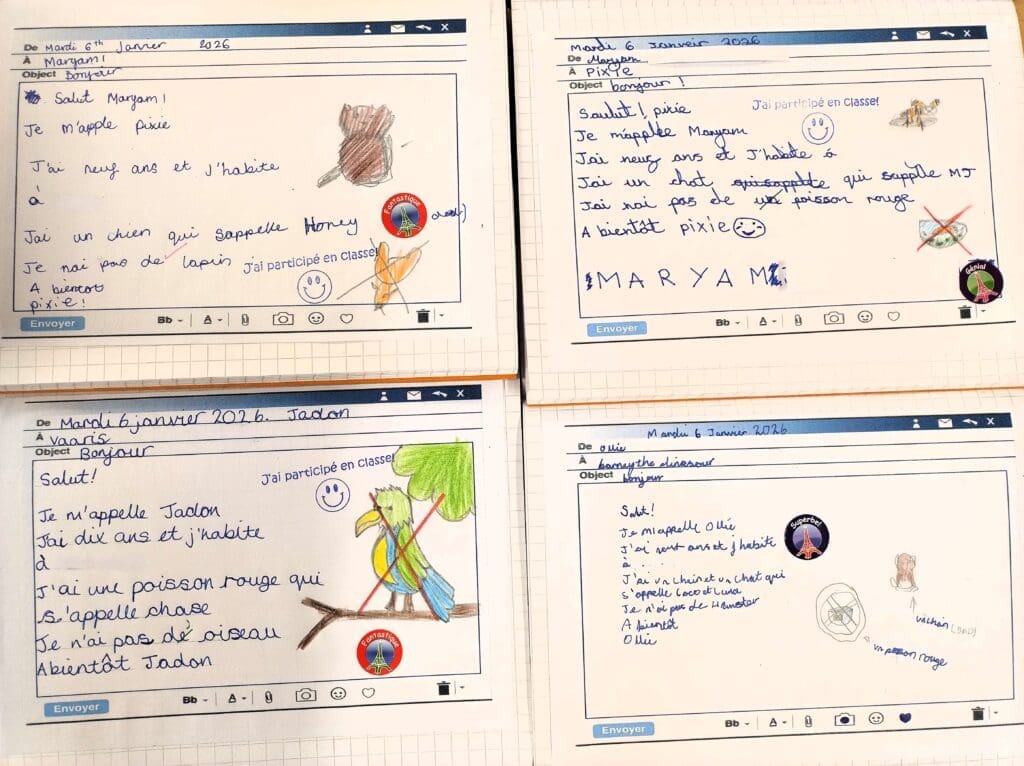 De Mardi 6th Janvier 2026
À Maryam!
Object Bonjour
Salut Maryam!
Je m'apple Pixie
J'ai neuf ans et j'habite
à
J'ai un chien qui sappelle Honey
Fantastique
Je nai pas de lapin
J'ai participé en classe!
A bientot
pixie!
Envoyer
Bb
A
Mardi 6 Janveir 2026
De Maryam
À Pixie
Object bonjour!
J'ai participé en classe!
Saulut! pixie
Je m'applee Maryam
J'ai neuf ans et J'habite á
J'ai un chat qui sapplle MJ
J'ai nai pas de poisson rouge
A bientôt pixie
MARYAM
Génial
Envoyer
Bb
A
De Mardi 6 janvier 2026. Jadon
À Vaaris
Object Bonjour
J'ai participé en classe!
Salut!
Je m'appelle Jadon
J'ai dix ans et j'habite
à
J'ai une poisson rouge qui
s'appelle chase
Je n'ai pas de oiseau
A bientôt Jadon
Fantastique
Envoyer
Bb
A
Mardi 6 Janvier 2026
De Ollie
À barnythe dinasour
Object bonjour
Salut!
Je M'appelle Ollie
J'ai neuf ans et j'habite
à .....
J'ai un chein et un chat qui
s'appelle Coco et Luna
Je n'ai pas de Hamster
A bientôt
Ollie
Superbe!
un rouge
Envoyer
Bb
A